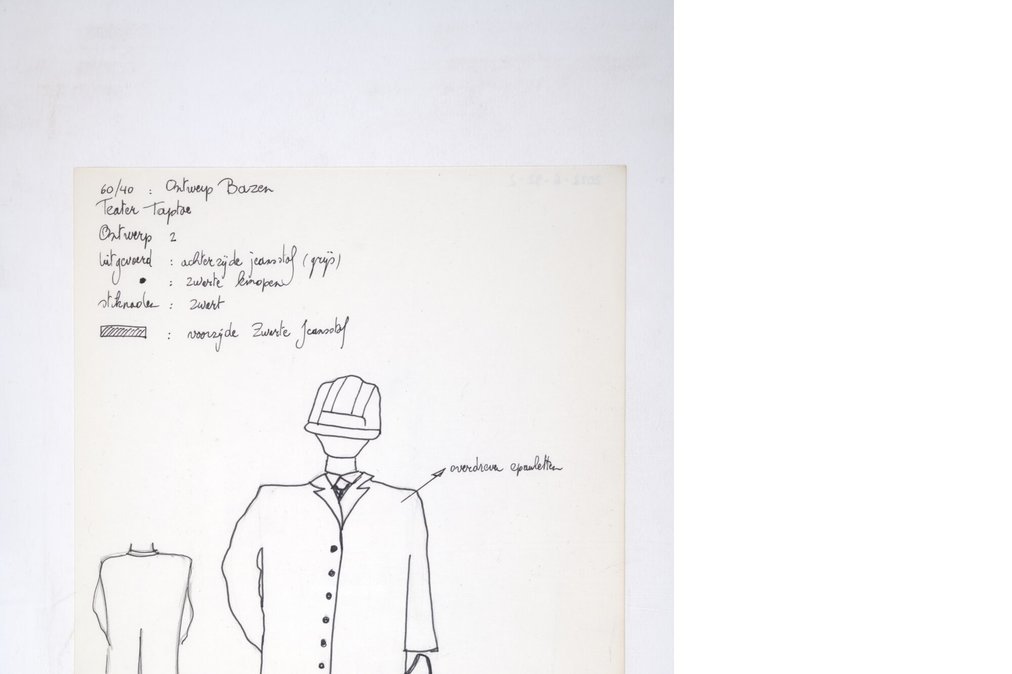 60/40 : Ontwerp Bazen
Teater Taptoe
Ontwerp 2
Uitgevoerd : achterzijde jeansstof (grijs)
: zwarte knopen
stiknaden : zwart
: voorzijde Zwarte Jeansstof
overdreven epauletten